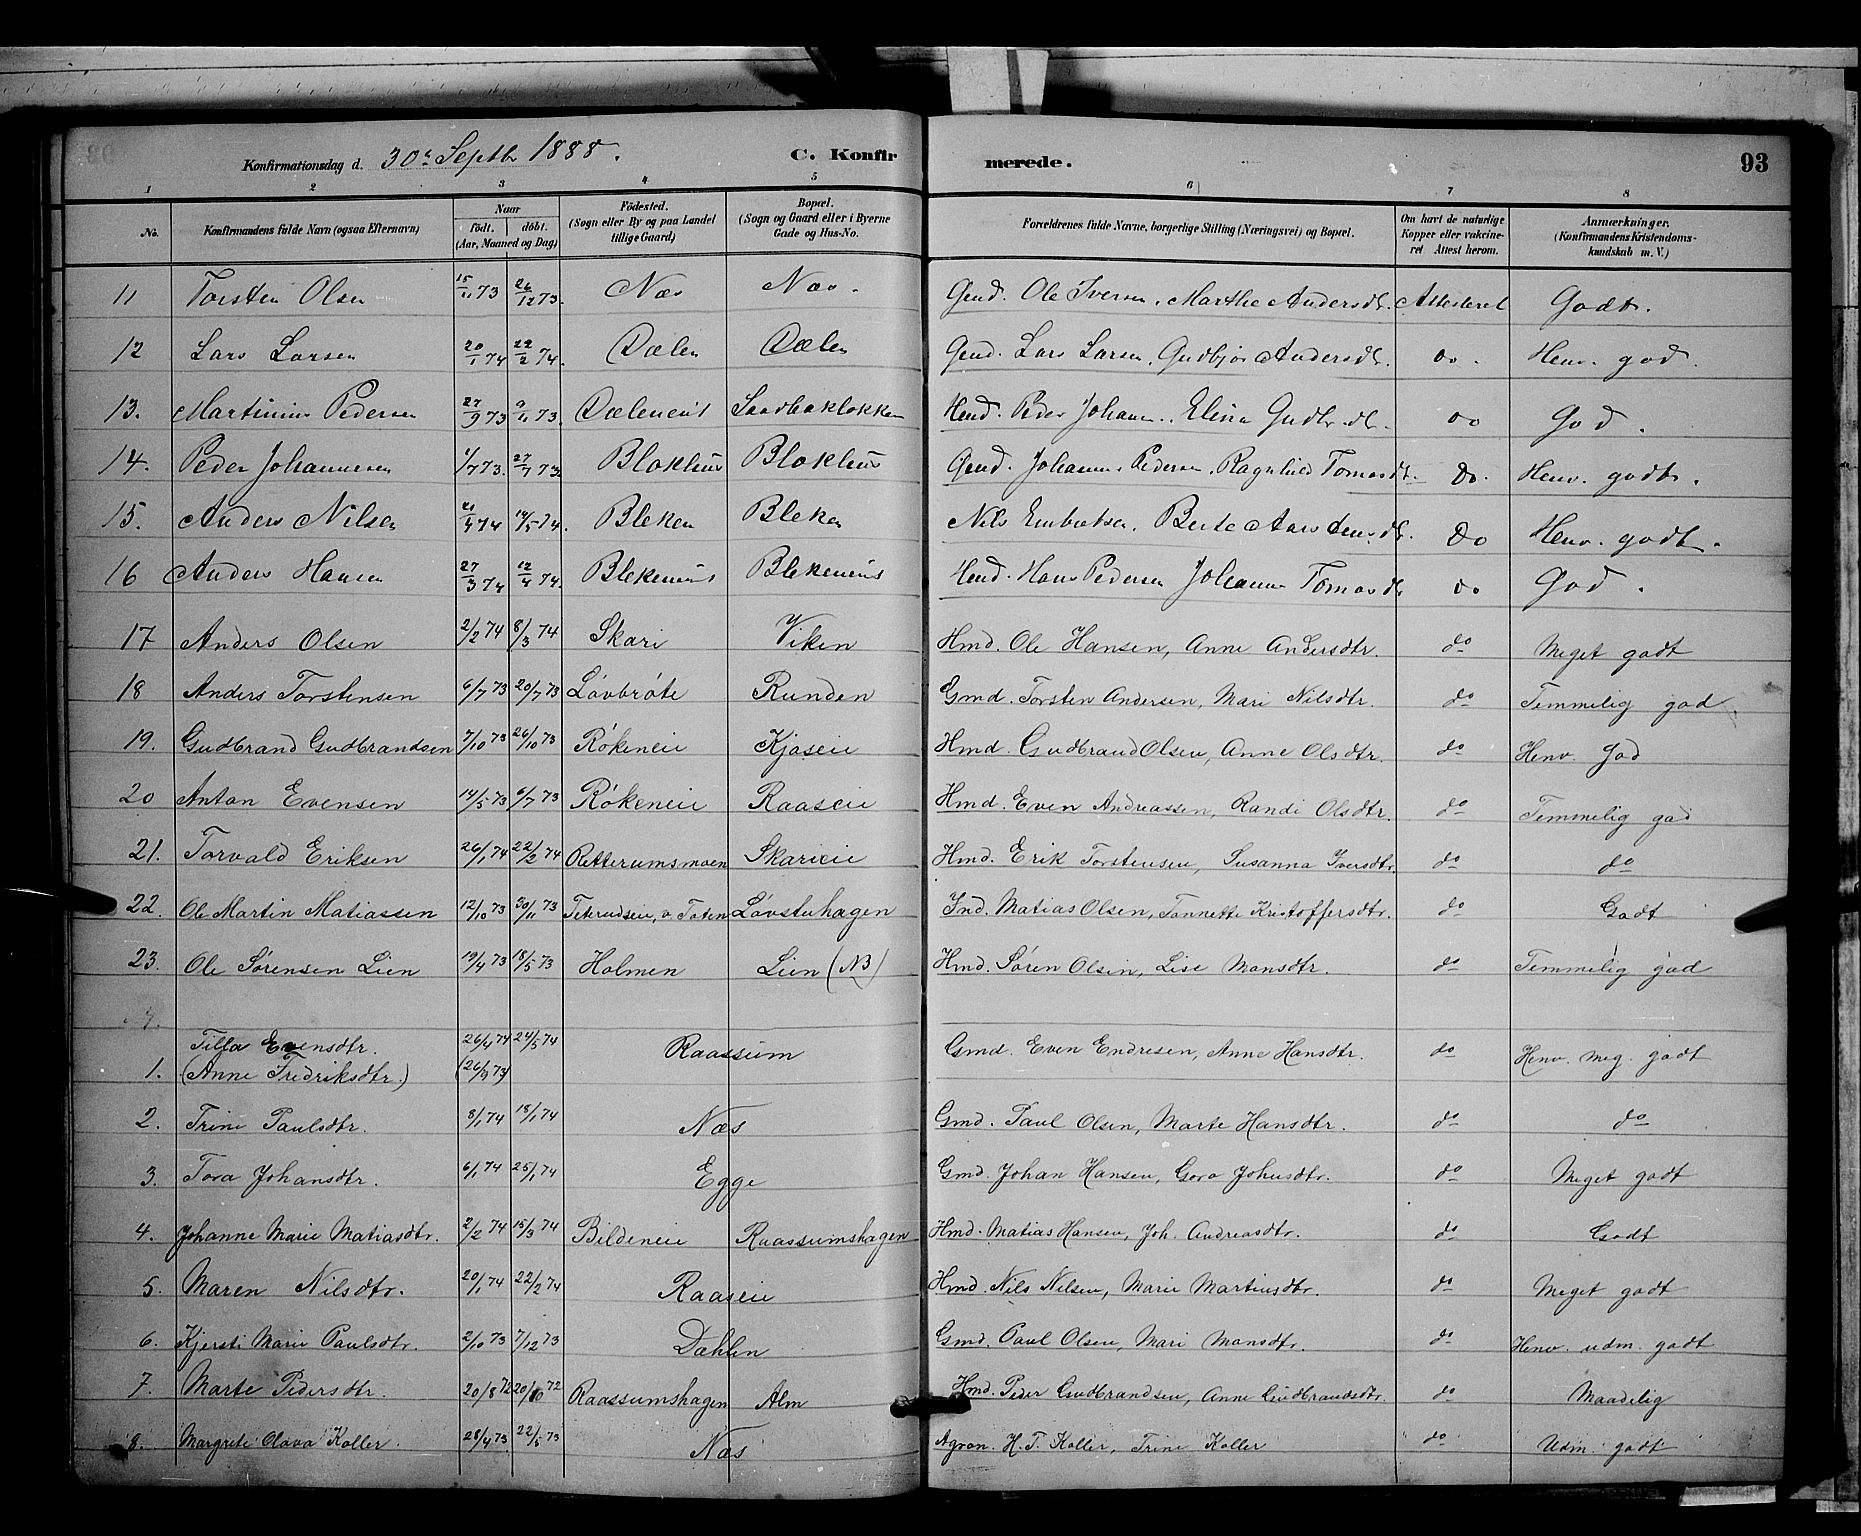 Konfirmationsdag d. 30te Septbr 1888. C. Konfirmerede. 93
1 2 3 4 5 6 7 8
No. Konfirmandens fulde Navn (ogsaa Efternavn) Naar født. døbt. (Aar, Maaned og Dag) Fødested. (Sogn eller By og paa Landet tillige Gaard) Bopæl. (Sogn og Gaard eller i Byerne Gade og Hus-No. Forældrenes fulde Navne, borgerlige Stilling (Næringsvei) og Bopæl. Om havt de naturlige Kopper eller vakcineret Attest herom. Anmærkninger. (Konfirmandens Kristendomskundskab m. V.)
11 Torsten Olsen 15/11 73 26/12 73. Næs Næs. Gmd. Ole Iversen. Marthe Andersdt. Attesteret Godt.
12 Lars Larsen 20/1 74 22/2 74. Dælen Dælen Gmd. Lars Larsen, Gudbjør Andersdt. Do. Henv. god.
13. Martinius Pedersen 27/9 73 9/11 73. Dæleneus Hmd. Peder Johansen. Eline Gudbr.dt. Do God.
14. Peder Johannesen 1/7 73. 27/7 73 Blokhus Blokhus Gmd. Johannes Pedersen. Ragnhild Tomasdt. Do. Henv. godt.
15. Anders Nilsen 21/4 74 14/5 74. Bleken Bleken Nils Embretsen. Berte Aarstensdt. Do Henv. godt.
16 Anders Hansen 27/3 74 12/4 74. Blekeneus Blekeneus Hmd. Hans Pedersen Johanne Tomasdt Do God.
17 Anders Olsen 2/2 74 8/3 74 Skari Viken Hmd. Ole Hansen, Anne Andersdtr. do Meget godt
18 Anders Torstensen 6/7 73 20/7 73 Løvbrøte Runden Gmd. Torsten Andersen, Mari Nilsdtr. do Temmelig god
19. Gudbrand Gudbrandsen 7/10 73 26/10 73 Røkeneie Kjøseie Hmd. Gudbrand Olsen, Anne Olsdtr. do Henv. God
20 Anton Evensen 14/5 73 6/7 73 Røkeneie Raaseie Hmd. Even Andreassen, Randi Olsdtr. do Temmelig god
21. Torvald Eriksen 26/1 74 22/2 74 Ratterumsmoen Skarieie Hmd. Erik Torstensen, Susanna Iversdtr. do do
22. Ole Martin Matiassen 12/10 73 30/11 73 Teterudseie, v. Toten Løvstuhagen Ind. Matias Olsen, Tonnette Kristoffersdtr. do Godt
23. Ole Sørensen Lien 19/4 73 18/5 73 Holmen Lien (NB) Hmd. Søren Olsen, Lise Monsdtr. do Temmelig god
Tilla Evensdtr. 26/4 74 24/5 74 Raassum Gmd. Even Endresen, Anne Hansdtr. do Henv. meg. godt
1. (Anne Fredriksdtr.) (26/9 73)
2. Trine Paulsdtr. 8/1 74 18/1 74 Næs Gmd. Paul Olsen, Marte Hansdtr. do do
3. Tora Johansdtr. 6/1 74 25/1 74 Egge Gmd. Johan Hansen, Goro Johnsdtr. do Meget godt
4. Johanne Marie Matiasdtr. 2/2 74 15/3 74 Bildeneie Raassumshagen Hmd. Matias Hansen, Joh. Andreasdtr. do Godt
5. Maren Nilsdtr. 20/1 74 22/2 74 Raaseie Hmd. Nils Nilsen, Marie Martinsdtr. do Meget godt
6. Kjersti Marie Paulsdtr. 2/10 73 7/12 73 Dæhlen Gmd. Paul Olsen, Mari Monsdtr. do Henv. udm. godt
7. Marte Pedersdtr. 20/8 72 20/10 72 Raassumshagen Alm Hmd. Peder Gudbrandsen, Anne Gudbrandsdtr. do Maadelig
8. Margrete Olava Koller 28/4 73 22/5 73 Næs Agron. H. T. Koller, Trine Koller do Udm. godt